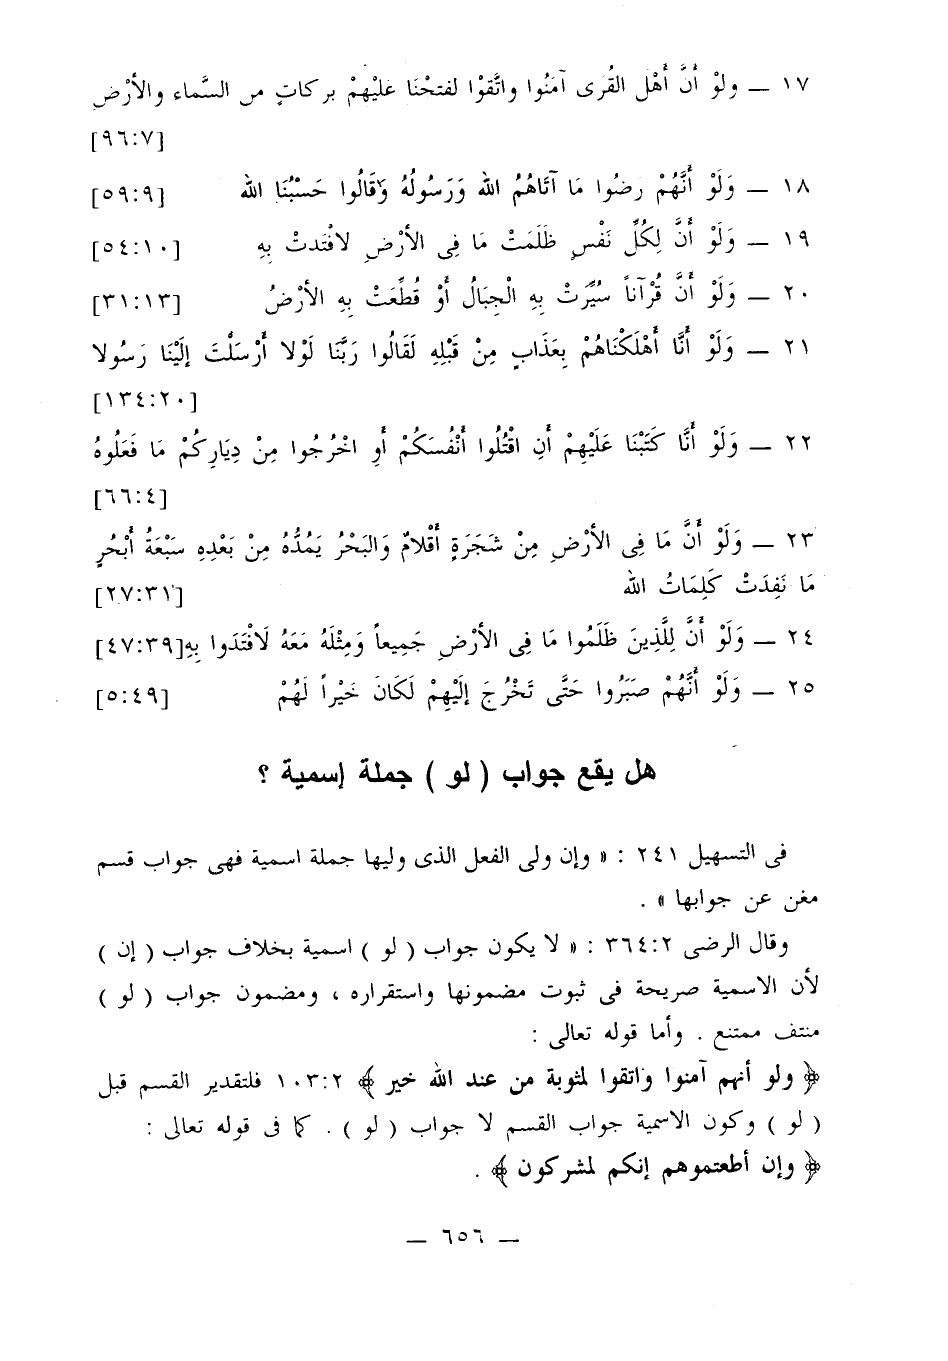 ١٧ ــ ولوْ أَنَّ أَهْل القُرى آمَنُوا واتَّقوْا لفتحْنَا عليْهِمْ بركاتٍ من السَّماء والأرْضِ
[٩٦:٧]
١٨ ــ وَلَوْ أَنَّهُمْ رضُوا مَا آتَاهُمُ الله وَرَسُولُهُ وَقَالُوا حَسْبُنَا الله [٥٩:٩]
١٩ ــ وَلَوْ أَنَّ لِكُلِّ نَفْسٍ ظَلَمَتْ مَا فِى الأرْضِ لافْتَدتْ بِهِ [٥٤:١٠]
٢٠ ــ وَلَوْ أَنَّ قُرْآناً سُيِّرَتْ بِهِ الْجِبَالُ أَوْ قُطِّعَتْ بِهِ الأرْضُ [٣١:١٣]
٢١ ــ وَلَوْ أَنَّا أَهْلَكْنَاهُمْ بِعَذَابٍ مِنْ قَبْلِهِ لَقَالُوا رَبَّنَا لَوْلا أَرْسَلْتَ إِلَيْنَا رَسُولا
[١٣٤:٢٠]
٢٢ ــ وَلَوْ أَنَّا كَتَبْنَا عَلَيْهِمْ أَنِ اقْتُلُوا أَنْفُسَكُمْ أَوِ اخْرُجُوا مِنْ دِيَارِكُمْ مَا فَعَلُوهُ
[٦٦:٤]
٢٣ ــ وَلَوْ أَنَّ مَا فِى الأرْضِ مِنْ شَجَرَةٍ أَقْلامٌ وَالبَحْرُ يَمُدُّهُ مِنْ بَعْدِهِ سَبْعَةُ أَبْحُرٍ
مَا نَفِدَتْ كَلِمَاتُ الله [٢٧:٣١]
٢٤ ــ وَلَوْ أَنَّ لِلَّذِينَ ظَلَمُوا مَا فِى الأرْضِ جَمِيعاً وَمِثْلَهُ مَعَهُ لَافْتَدَوا بِهِ[٤٧:٣٩]
٢٥ ــ وَلَوْ أَنَّهُمْ صَبَرُوا حَتَّى تَخْرُجَ إِلَيْهِمْ لَكَانَ خَيْراً لَهُمْ [٥:٤٩]
هل يقع جواب ( لو ) جملة إسمية ؟
فى التسهيل ٢٤١ : « وإن ولى الفعل الذى وليها جملة اسمية فهى جواب قسم
مغن عن جوابها » .
وقال الرضى ٣٦٤:٢ : « لا يكون جواب ( لو ) اسمية بخلاف جواب ( إن )
لأن الاسمية صريحة فى ثبوت مضمونها واستقراره ، ومضمون جواب ( لو )
منتف ممتنع . وأما قوله تعالى :
﴿ ولو أنهم آمنوا واتقوا لمثوبة من عند الله خير ﴾ ١٠٣:٢ فلتقدير القسم قبل
( لو ) وكون الاسمية جواب القسم لا جواب ( لو ) . كما فى قوله تعالى :
﴿ وإن أطعتموهم إنكم لمشركون ﴾ .
ــ ٦٥٦ ــ